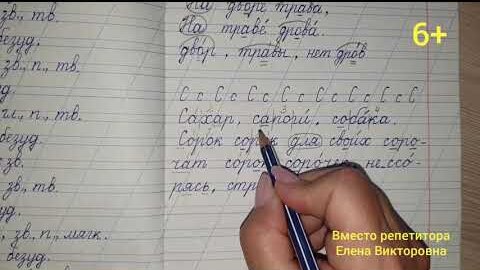 зв., тв.
безуд.
зв., п., тв.
уд.
п., тв.
безуд.
зв.
зв., тв.
уд.
зв., п., мягк.
безуд.
На дворе трава,
На траве дрова.
двор, травы, нет дров
С с С с С с С с С с С с С с С
Сахар, сапоги, собака.
Сорок сорок для своих соро-
чат сорок сорочек не ссо-
рясь,
6+
Вместо репетитора
Елена Викторовна